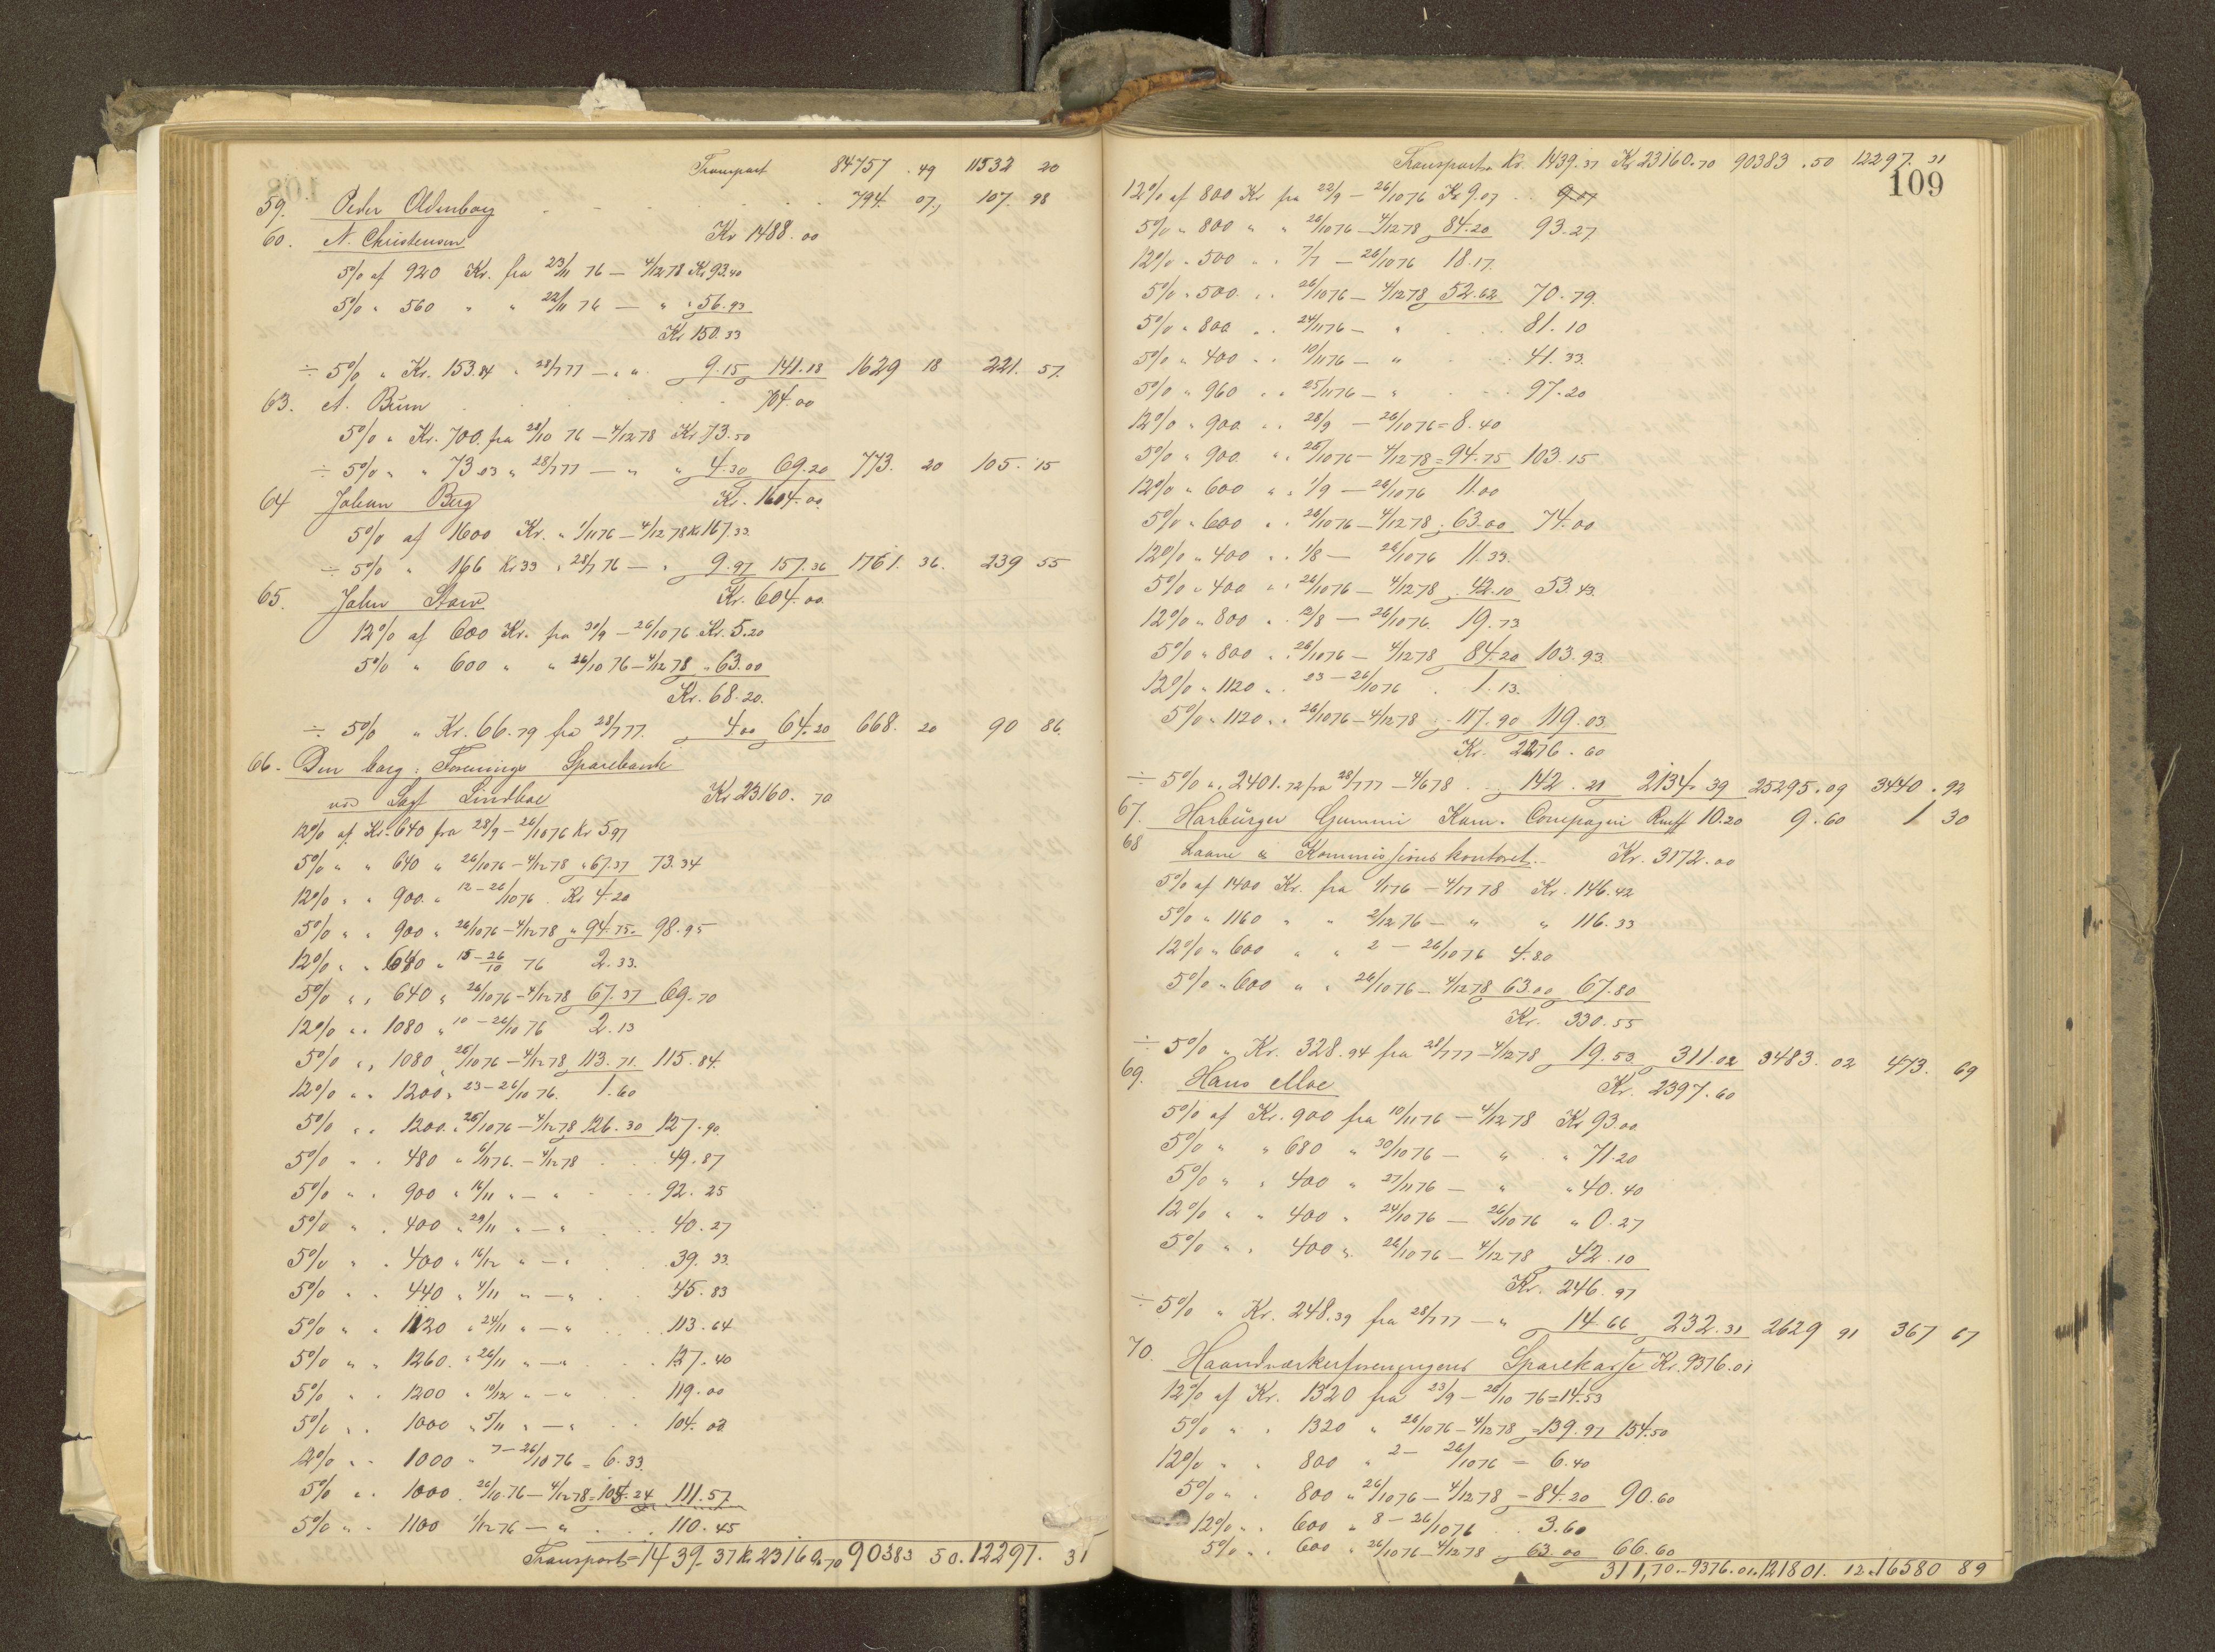 Transport 84757 . 49 11532 20
59. Peder Oldenborg . - - . . . . 794. 07., 107. 98
60. N. Christensen Kr 1488.00
5% af 920 Kr. fra 23/11 76 — 4/12 78 Kr 93.40
5% " 560 " " 22/11 76 — " " 56.93
Kr 150.33
÷ 5% " Kr. 153.84 " 28/7 77 — " " 9.15 141.18 1629 18 221. 57.
63. A. Büm . . . . . . 704.00
5% " Kr. 700. fra 28/10 76 — 4/12 78 Kr 73.50
÷ 5% " " 73.03 " 28/7 77 — " " 4.30 69.20 773. 20 105. 15
64 Johan Berg Kr. 1604.00
5% af 1600 Kr. " 1/11 76 — 4/12 78 Kr 167.33
÷ 5% " 166 Kr 33 " 28/7 76 — " 9.97 157.36 1761. 36. 239 55
65. John Kr. 604.00
12% af 600 Kr. fra 30/9 — 26/10 76 Kr. 5.20
5% " 600 " " 26/10 76 — 4/12 78 " 63.00
Kr. 68.20.
÷ 5% " Kr. 66.79 fra 28/7 77. 4.00 64.20 668. 20 90 86.
66. Den borg: Forenings Sparebank
v/d Sagf Lindboe Kr 23160. 70
12% af Kr. 640 fra 28/9 — 26/10 76 Kr 5.97
5% " " 640 " 26/10 76 — 4/12 78 " 67.37 73.34
12% " " 900. " 12 — 26/10 76 . Kr 4.20
5% " " 900 " 26/10 76 — 4/12 78 " 94.75. 98.95
12% " " 640 " 15 — 26/10 76 2.33.
5% " " 640 " 26/10 76 — 4/12 78 67.37 69.70
12% " " 1080 " 10 — 26/10 76 2.13
5% " " 1080 " 26/10 76 — 4/12 78 113.71. 115.84.
12% " " 1200 " 23 — 26/10 76. 1.60
5% " " 1200. " 26/10 76 — 4/12 78 126.30 127.90.
5% " " 480 " 6/11 76. — 4/12 78 . . 49.87
5% " " 900 " 14/11 " — " . . 92. 25
5% " " 400 " 29/11 " — " . . 40.27
5% " " 400 " 16/12 " — " . . 39. 33.
5% " " 440 " 4/11 " — " . . 45.83
5% " " 1120 " 24/11 " — " . . 113.64
5% " " 1260. " 26/11 " — " . . 127.40
5% " " 1200 " 10/12 " — " . . 119.00
5% " " 1000 " 5/11 " — " . . 104.03
12% " " 1000 " 7 — 26/10 76 = 6.33.
5% " " 1000 . 26/10 76 — 4/12 78 = 105.24 111.57
5% " " 1100 1/12 76 — " . . . 110.45
Transport = 1439. 37 Kr 23160.70 90383 50. 12297. 31
109
Transport Kr. 1439.37 Kr 23160.70 90383 .50 12297. 31
12% af 800 Kr fra 22/9 — 26/10 76 Kr 9.07 . . 9.07
5% " 800 " " 26/10 76 — 4/12 78 84.20 93.27
12% " 500 " " 7/7 — 26/10 76 18.17.
5% " 500. " " 26/10 76 — 4/12 78 52.62 70.79.
5% " 800. " . 24/11 76 — " . . . 81. 10
5% " 400 " . 10/11 76 — " . . . 41. 33.
5% " 960 " " 25/11 76 — " . . . 97.20
12% " 900. " . 28/9 — 26/10 76 = 8.40
5% " 900. " " 26/10 76 — 4/12 78 = 94.75 103.15
12% " 600 " " 1/9 — 26/10 76 11.00
5% " 600 " . 26/10 76 — 4/12 78 . 63.00 74.00
12% " 400 " . 1/8 — 26/10 76 11.33.
5% " 400 " " 26/10 76 — 4/12 78 . 42.10 53.43.
12% " 800 " . 12/8 — 26/10 76. 19.73
5% " 800 " . 26/10 76 — 4/12 78 84.20 103.93.
12% " 1120 " . 23 — 26/10 76 . 1.13.
5% " 1120 " . 26/10 76 — 4/12 78 . . 117.90 119.03.
Kr. 2276.60
÷ 5% " . 2401.72 fra 28/7 77 — 4/6 78 . 142.21 2134.39 25295.09 3440.92
67. Harbürger Gummi Kam. Compagni Rmf 10.20 9.60 1 30
68 Laane & Kommissions kontoret. Kr. 3172.00
5% af 1400 Kr. fra 1/11 76 — 4/12 78 Kr. 146.42
5% " 1160 " " 2/12 76 — " " 116.33
12% " 600 " " 2 — 26/10 76 4.80
5% " 600 " " 26/10 76 — 4/12 78 63.00 67.80
Kr. 330.55
÷ 5% " Kr. 328.94 fra 28/7 77 — 4/12 78 19.53 311.02 3483. 02 473. 69
69. Hans Moe Kr. 2397.60
5% af Kr. 900 fra 10/11 76 — 4/12 78 Kr 93.00
5% " " 680 " 30/10 76 — " " 71.20
5% " " 400 " 27/11 76 — " " 40.40
12% " " 400 " 24/10 76 — 26/10 76 " 0.27
5% " " 400 " 26/10 76 — 4/12 78 42.10
Kr. 246.97
÷ 5% " Kr. 248.39 fra 28/7 77 — " 14.66 232.31 2629 91 367 67
70. Haandværkerforeningens Sparekasse Kr. 9376.01
12% af Kr. 1320 fra 23/9 — 26/10 76 = 14.53
5% " " 1320 " 26/10 76 — 4/12 78 = 139.97 154.50
12% " " 800 " 2 — 26/10 76 = 6.40
5% " " 800 " 26/10 76 — 4/12 78 = 84.20 90.60
12% " " 600 " 8 — 26/10 76 . . 3.60
5% " " 600 " 26/10 76 — 4/12 78 63.00 66.60
311,70 . 9376.01 . 121801. 12 . 16580 89